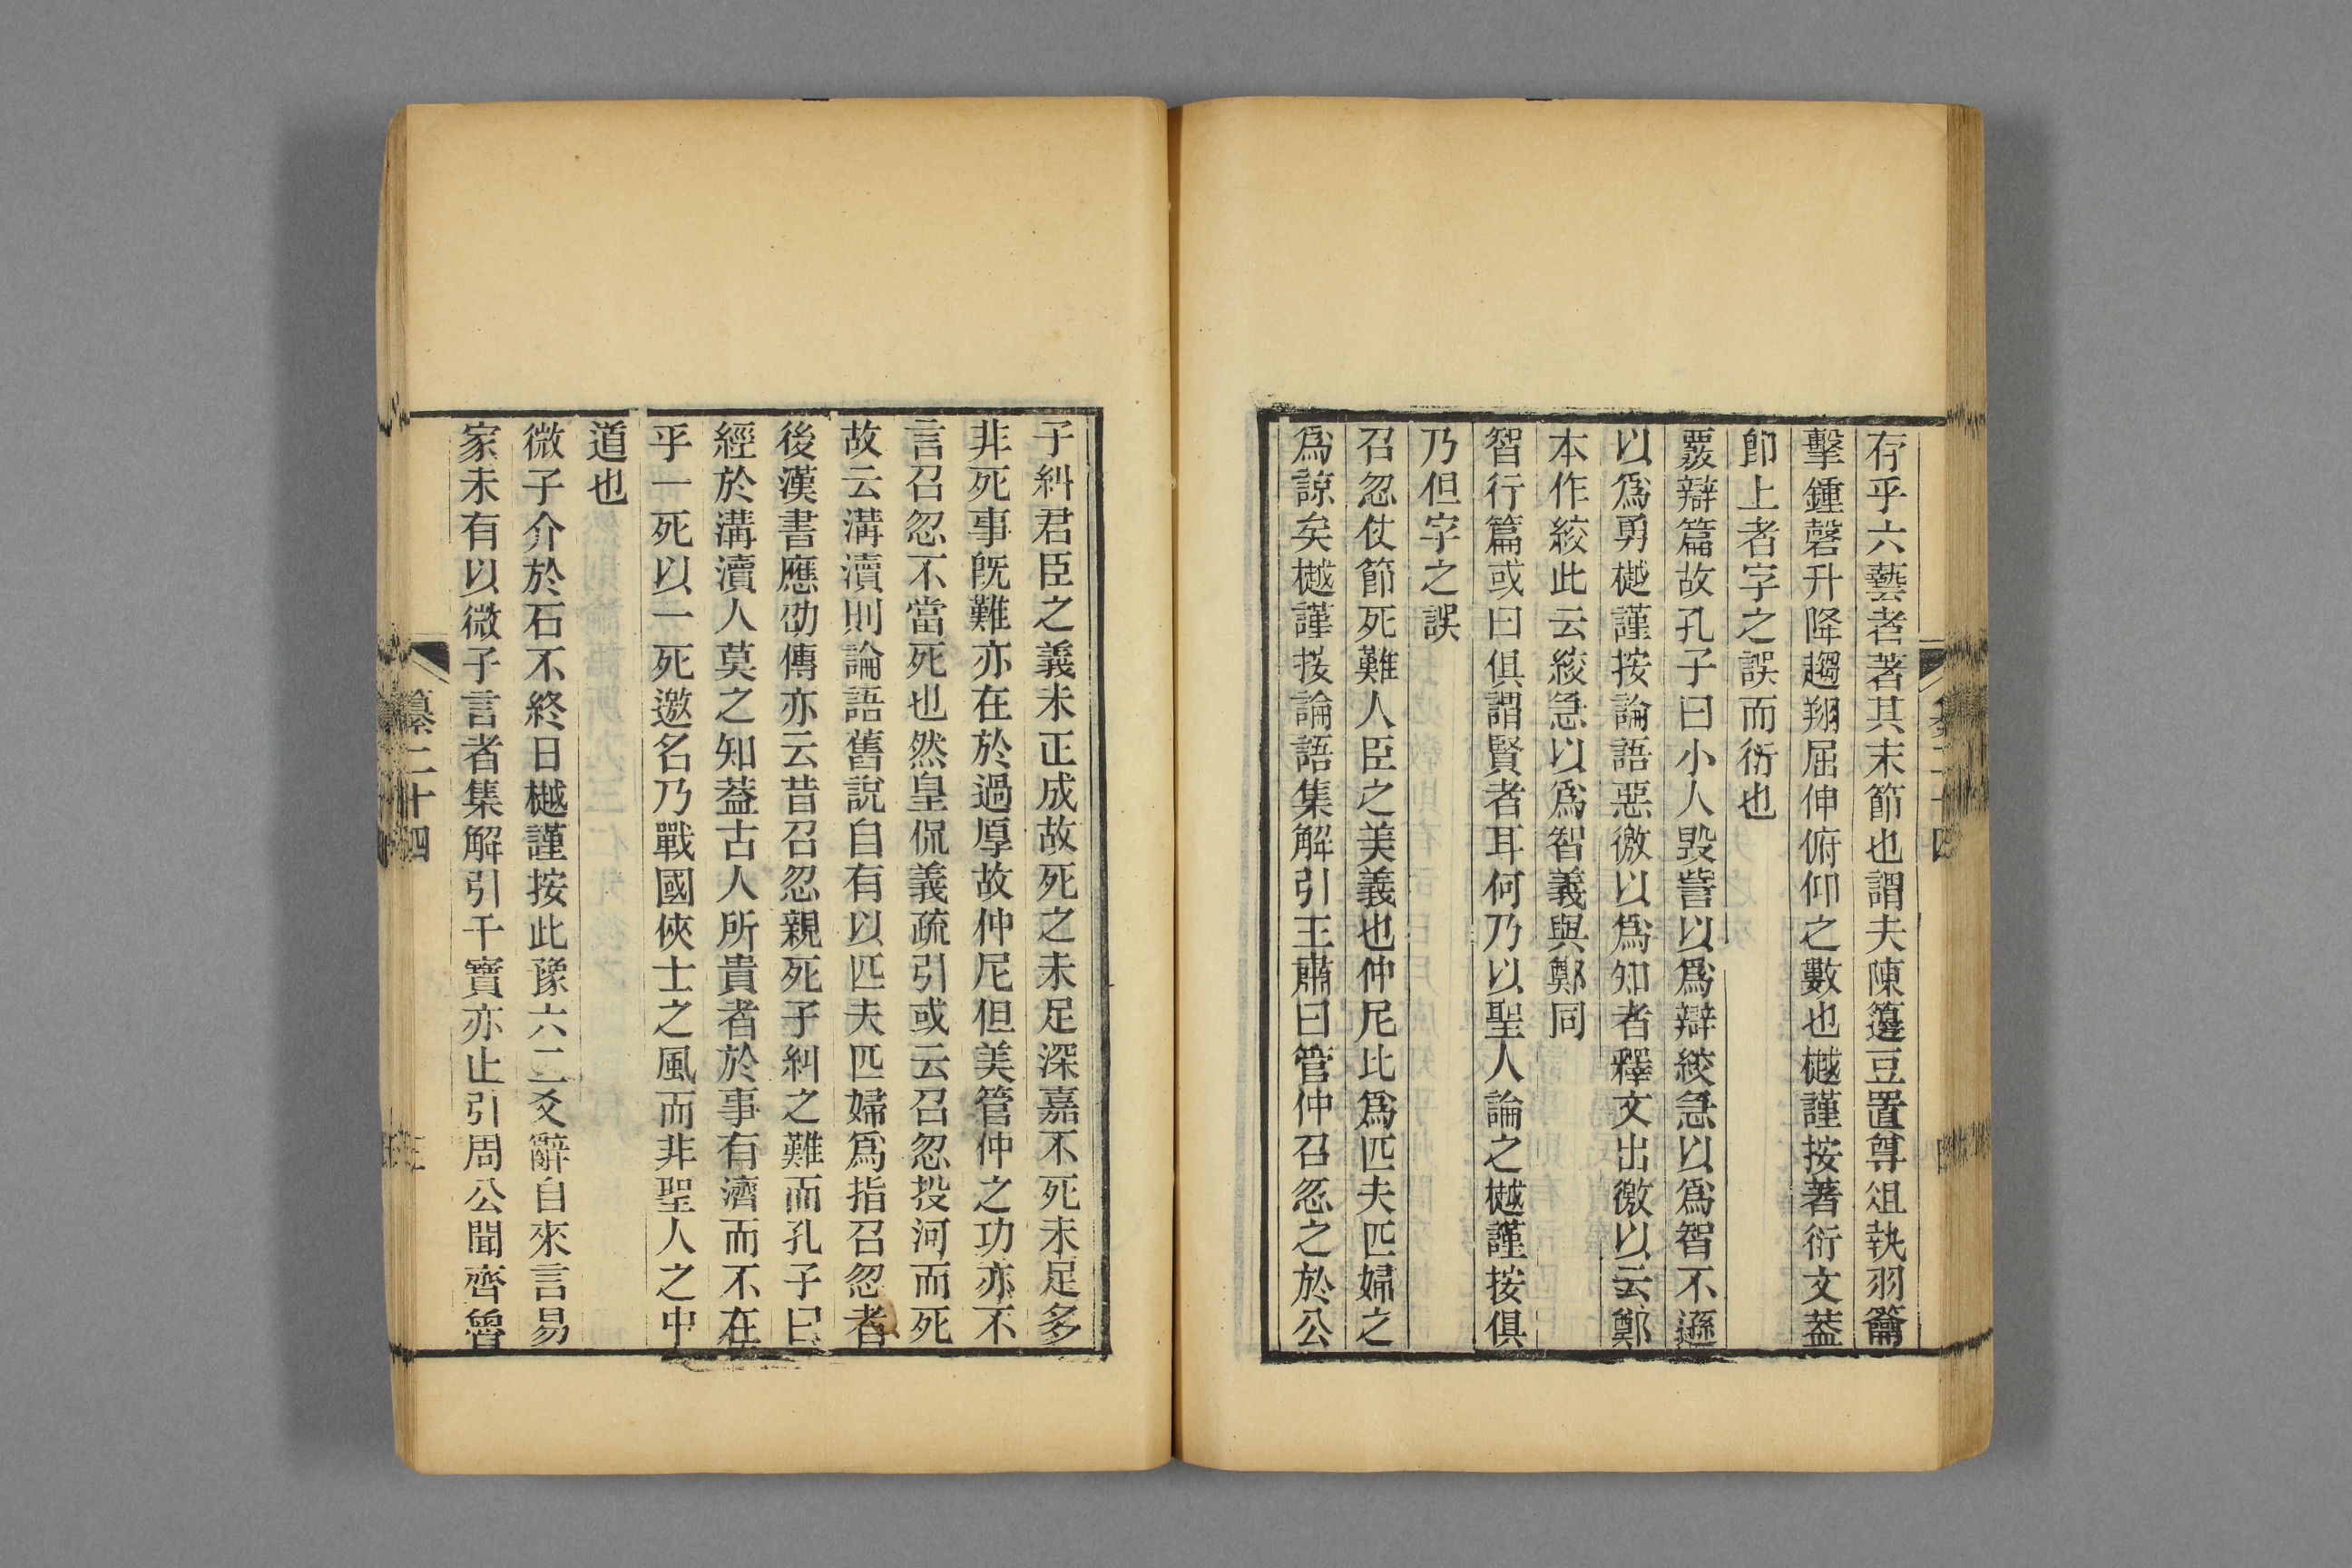 存乎六藝者著其末節也謂夫陳籩豆置尊俎執羽籥
擊鍾磬升降趨翔屈伸俯仰之數也樾謹按著衍文葢
卽上者字之誤而衍也
覈辯篇故孔子曰小人毀訾以爲辯絞急以爲智不遜
以爲勇樾謹按論語惡徼以爲知者釋文出徼以云鄭
本作絞此云絞急以爲智義與鄭同
智行篇或曰俱謂賢者耳何乃以聖人論之樾謹按俱
乃但字之誤
召忽伏節死難人臣之美義也仲尼比爲匹夫匹婦之
爲諒矣樾謹按論語集解引王肅曰管仲召忽之於公
子糾君臣之義未正成故死之未足深嘉不死未足多
非死事旣難亦在於過厚故仲尼但美管仲之功亦不
言召忽不當死也然皇侃義疏引或云召忽投河而死
故云溝瀆則論語舊說自有以匹夫匹婦爲指召忽者
後漢書應劭傳亦云昔召忽親死子糾之難而孔子曰
經於溝瀆人莫之知葢古人所貴者於事有濟而不在
乎一死以一死邀名乃戰國俠士之風而非聖人之中
道也
微子介於石不終日樾謹按此豫六二爻辭自來言易
家未有以微子言者集解引干寶亦止引周公聞齊魯
纂二十四